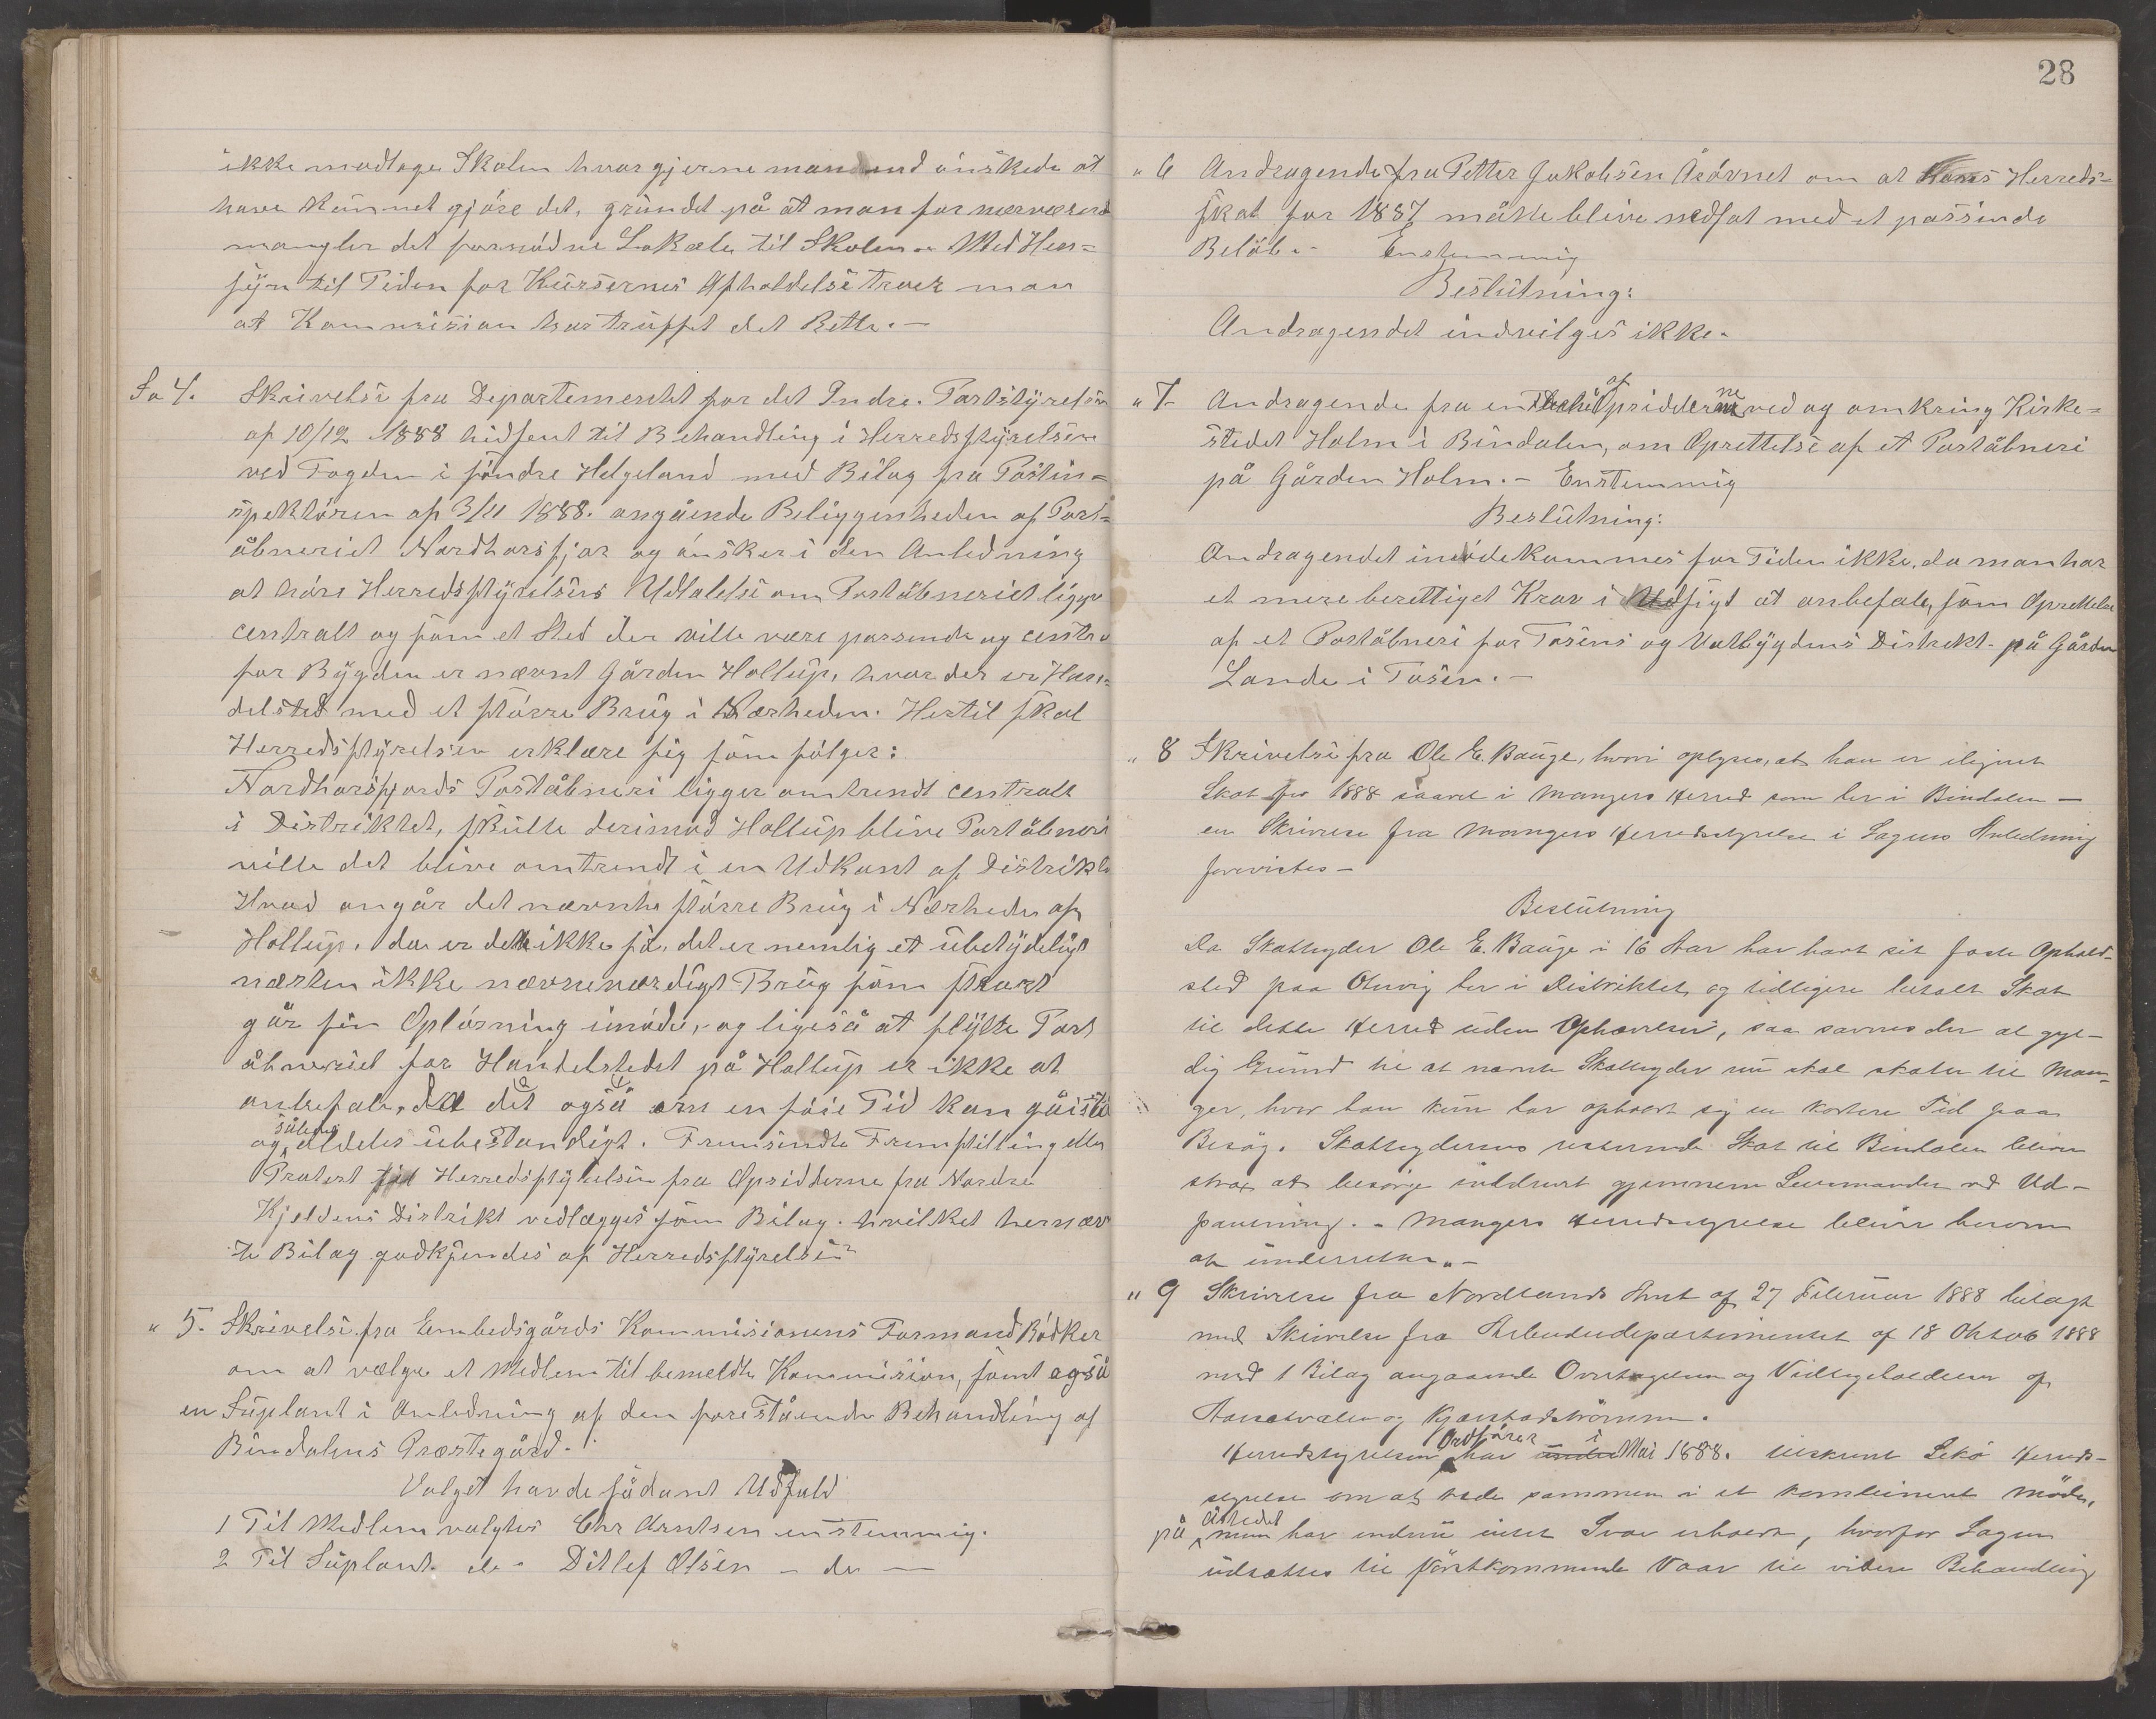 ikke modtage Skolen hvor gjerne man end önskede at
have kunnet gjöre det, grundet på at man for nærværende
mangler det fornödne Lokale til Skolen. Med Hen=
syn til Tiden for Kursernes Afholdelse troer man
at Kommisionen har truffet det Rette. —
Sa 4. Skrivelse fra Departementet for det Indre. Poststyrelsen
af 10/12 1888 hidsent til Behandling i Herredsstyrelsen
ved Fogden i söndre Helgeland med Bilag fra Postin=
spektören af 3/11 1888. angående Beliggenheden af Post=
åbneriet Nordhorsfjor og önsker i den Anledning
at höre Herredsstyrelsens Udtalelse om Poståbneriet ligger
centralt og som et Sted der ville være passende og centra
for Bygden er nævnt Gården Hollup, hvor der er Han=
delsted med et större Brug i Nærheden. Hertil skal
Herredsstyrelsen erklære sig som fölger:
Nordhorsfjords Poståbneri ligger omtrendt centralt
i Distriktet, skulle derimod Hollup blive Poståbneri
ville det blive omtrendt i en Udkant af Distrikte
Hvad angår det nævnte större Brug i Nærheden af
Hollup, da er dette ikke så, det er nemlig et ubetydeligt
næsten ikke nævneværdigt Brug som snart
går sin Oplösning imöde, og ligeså at flytte Post
åbneriet for Handelstedet på Hollup er ikke at
anbefale, da det også om en föie Tid kan gå istå
og således aldeles ubestandigt. Fremsendte Fremstilling eller
Protest til Herredsstyrelsen fra Opsidderne fra Nordre
Kjeldens Distrikt vedlægges som Bilag. hvilket hernæv
te Bilag godkjendes af Herredsstyrelsen
" 5. Skrivelse fra Embedsgårds Kommisionens Formand Bödker
om at vælge et Medlem til bemeldte Kommision, samt også
en Suplant i Anledning af den forestående Behandling af
Bindalens Præstegård.
Valget havde sådant Udfald
1 Til Medlem valgtes Chr Arntsen enstemmig.
2 Til Suplant do - Ditlef Olsen - do —
28
" 6 Andragende fra Petter Jakobsen Årövnet om at Hans Herreds=
skat for 1887 måtte blive nedsat med et passende
Belöb. - Enstemmig
Beslutning:
Andragendet indvilges ikke.
" 7. Andragende fra en af Opsidderne ved og omkring Kirke=
stedet Holm i Bindalen, om Oprettelse af et Poståbneri
på Gården Holm. - Enstemmig
Beslutning:
Andragendet imödekommes for Tiden ikke, da man har
et mere berettiget Krav i Udsigt at anbefale, som Oprettelse
af et Poståbneri for Tosens og Vatbygdens Distrikt på Gården
Lande i Tosen. —
" 8 Skrivelse fra Ole E. Bauge, hvori oplyses, at han er ilignet
Skat for 1888 saavel i Mangers Herred som her i Bindalen —
en Skrivelse fra Mangers Herredsstyrelse i Sagens Anledning
forevistes —
Beslutning
Da Skatteyder Ole E. Bauge i 16 Aar har havt sit faste Ophold-
sted paa Oterig her i Distriktet og tidligere betalt Skat
til dette Herred uden Ophævelser, saa savnes der al gyl-
dig Grund til at nævnte Skatteyder nu skal skatte til Man-
ger, hvor han kun har opholdt sig en kortere Tid paa
Besög. Skatteyderens resterende Skat til Bindalen bliver
strax at besörge inddrevet gjennem Lensmanden ved Ud-
pantning. - Mangers Herredsstyrelse bliver herom
at underrette. —
" 9 Skrivelse fra Nordlands Amt af 27 Februar 1888 bilagt
med Skrivelse fra Arbeidsdepartementet af 18 Oktob 1888
med 1 Bilag angaaende Overtagelsen og Vedligeholdelsen af
og Kjærstadströmmen.
Herredsstyrelsen Ordförer har i Mai 1888. tilskrevet Lekö Herreds-
styrelse om at træde sammen i et kombineret Möde,
på Åstedet men har endnu intet Svar erholdt, hvorfor Sagen
udsættes til förstkommende Vaar til videre Behandling